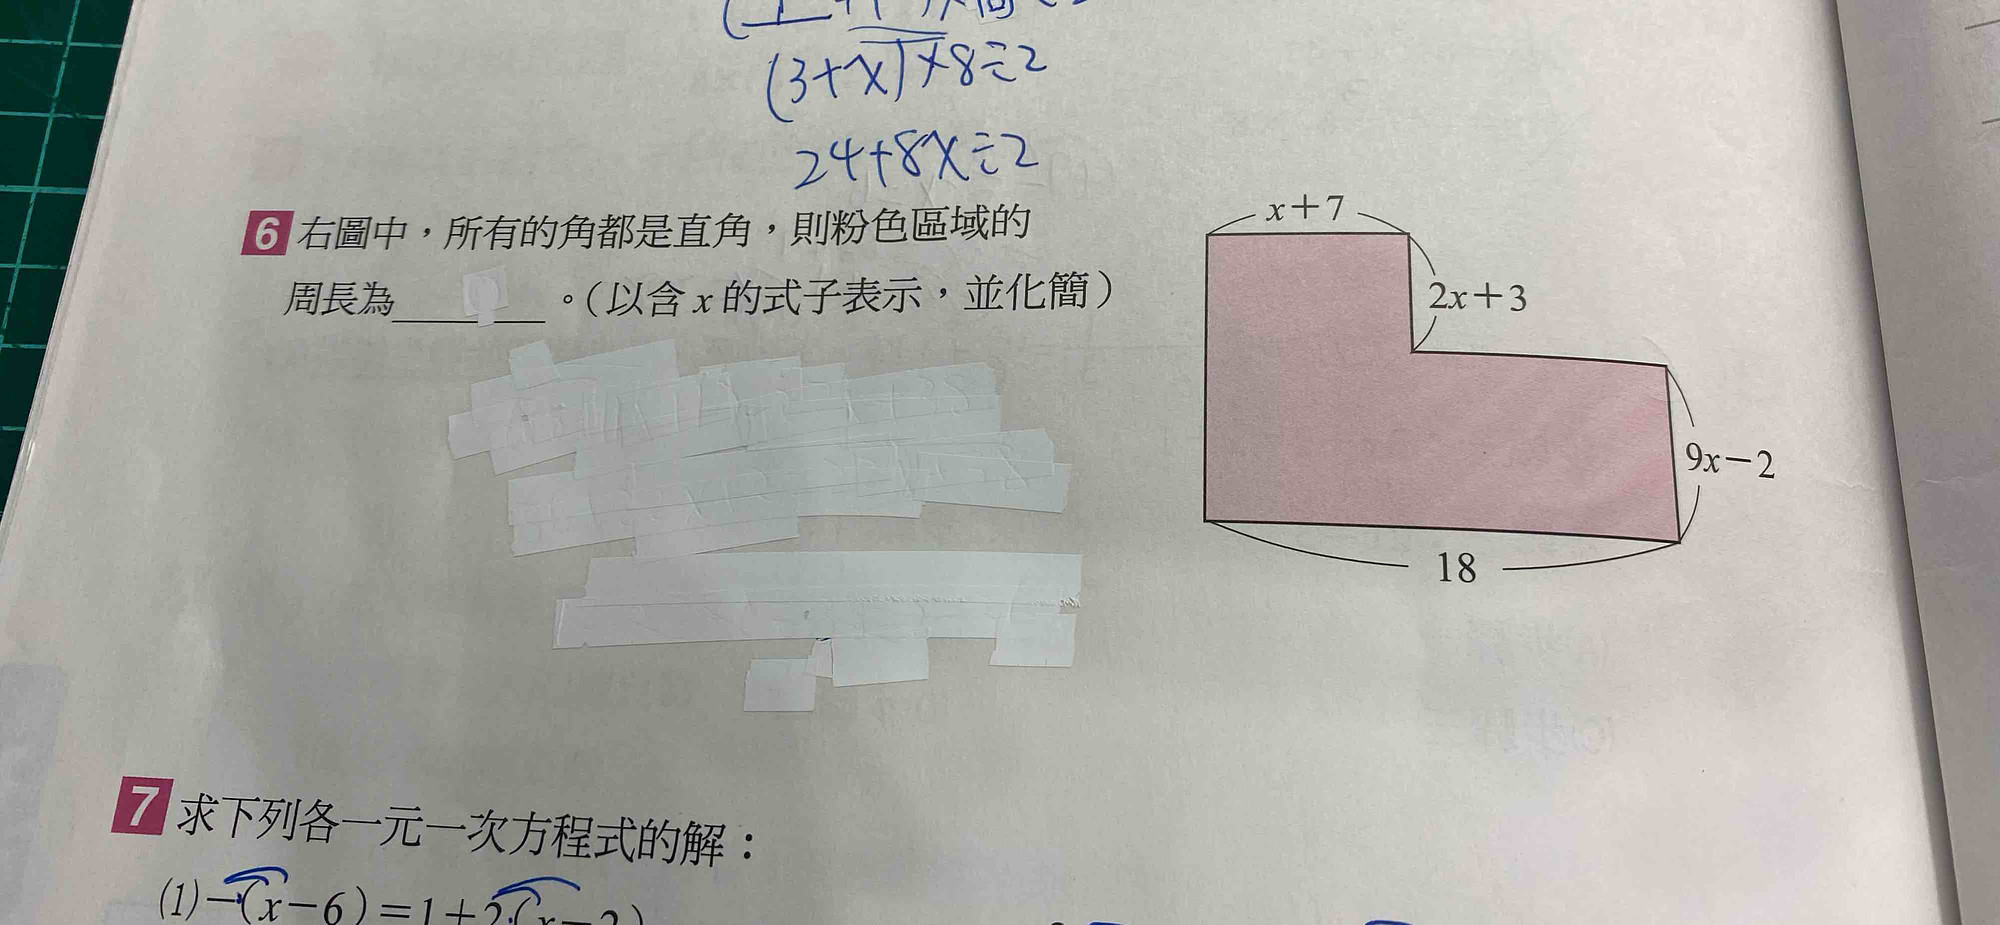 (3+x)×8÷2
24+8x÷2
6 右圖中，所有的角都是直角，則粉色區域的
周長為＿＿＿＿。（以含 x 的式子表示，並化簡）
x+7
2x+3
9x−2
18
7 求下列各一元一次方程式的解：
(1)−(x−6)=1+2(x−2)